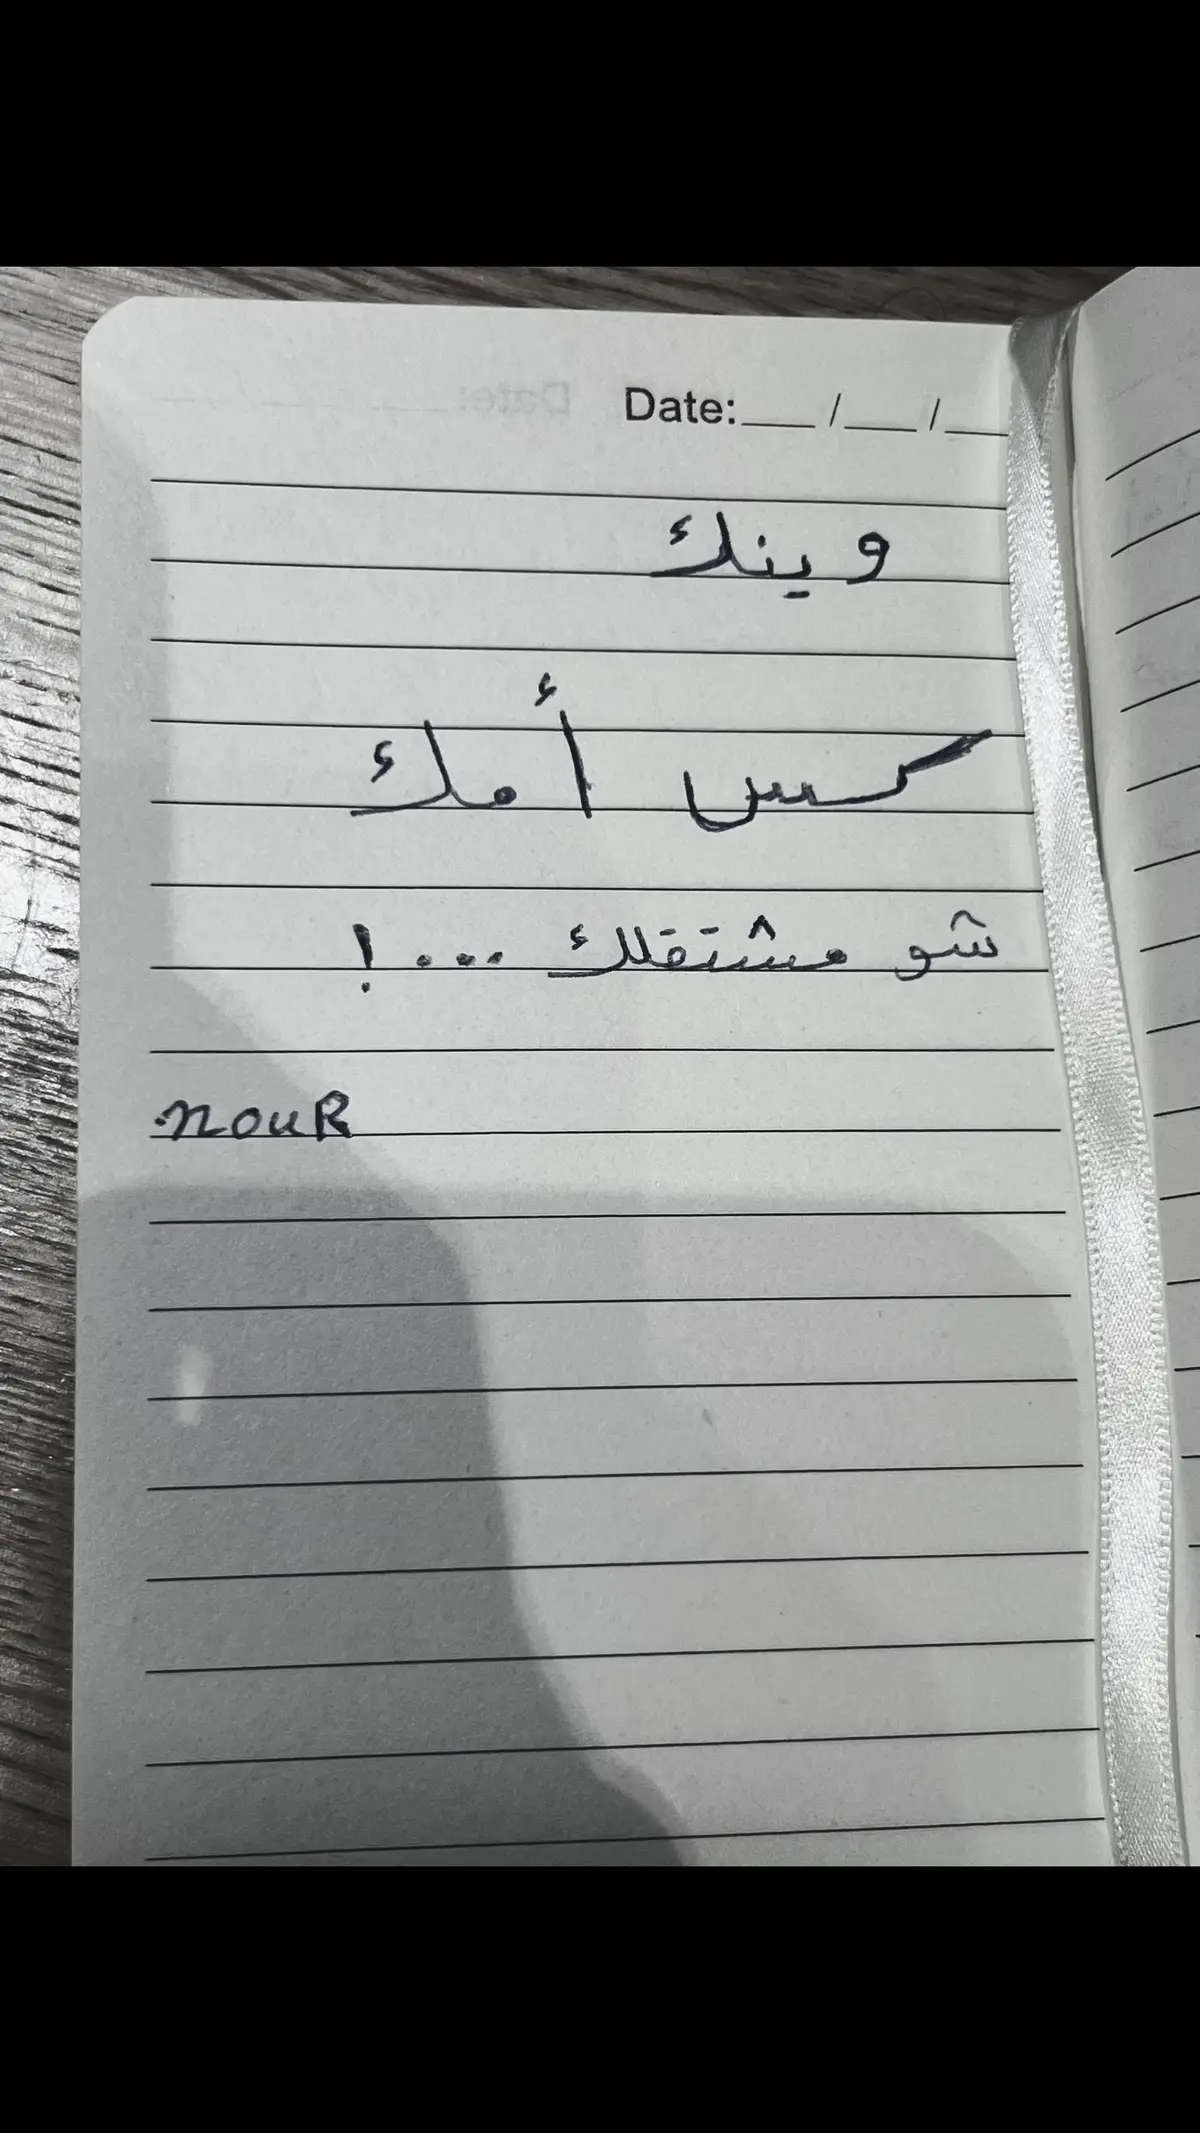 Date: __ / __ / __
وينك
كس أمك
شو مشتقلك ...!
nouR